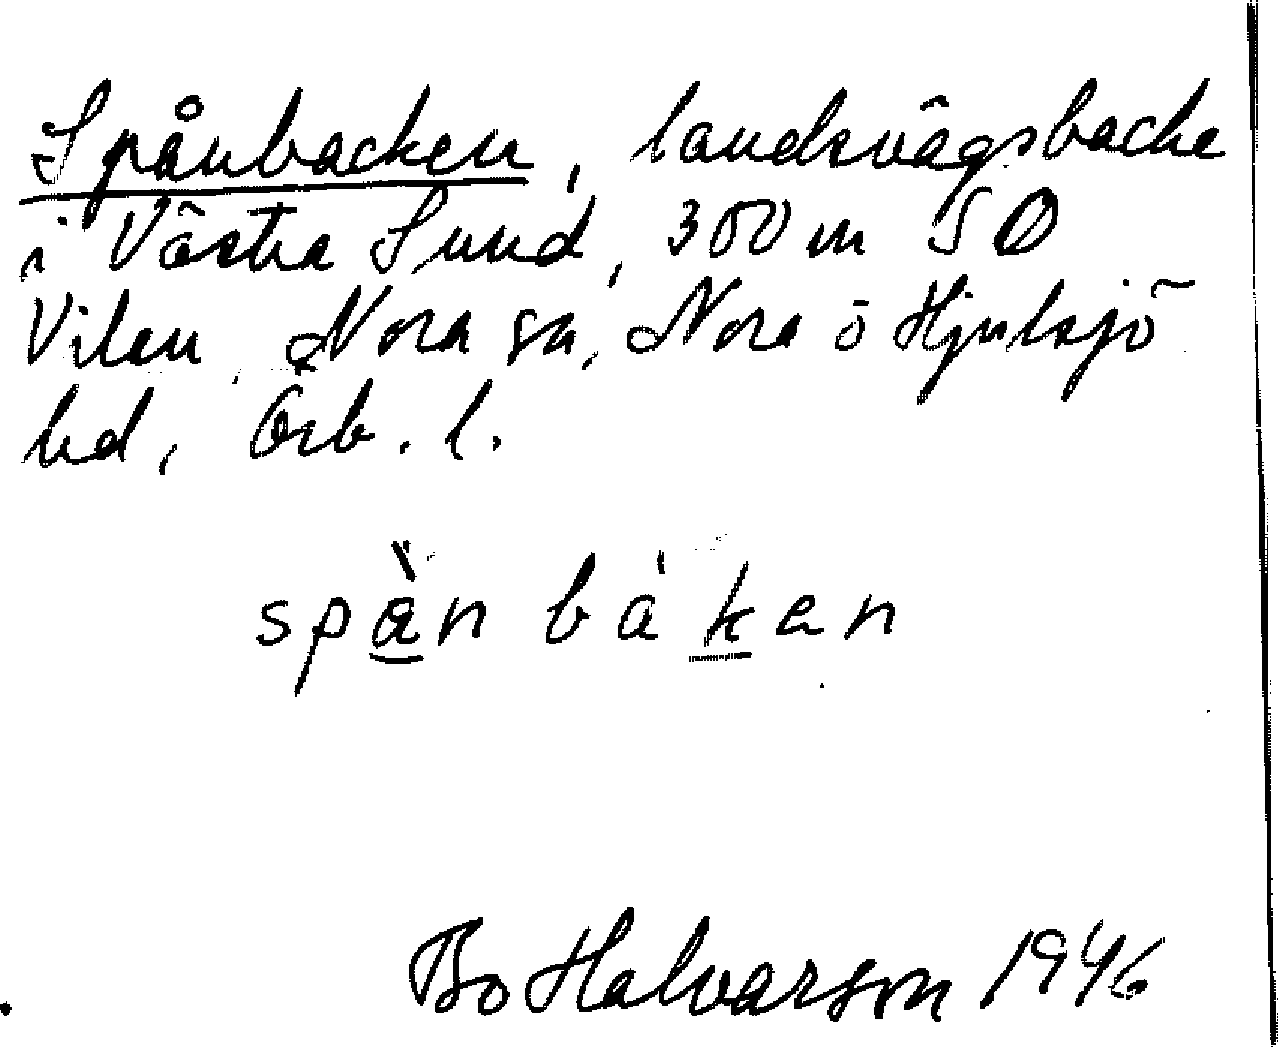 Spånbacken, landsvägsbacke
i Västra Sund, 300 m SO
Vilen, Nora sn, Nora o Hjulsjö
bd, Örb. l.
spå̀n bà ken
Bo Halvarson 1946